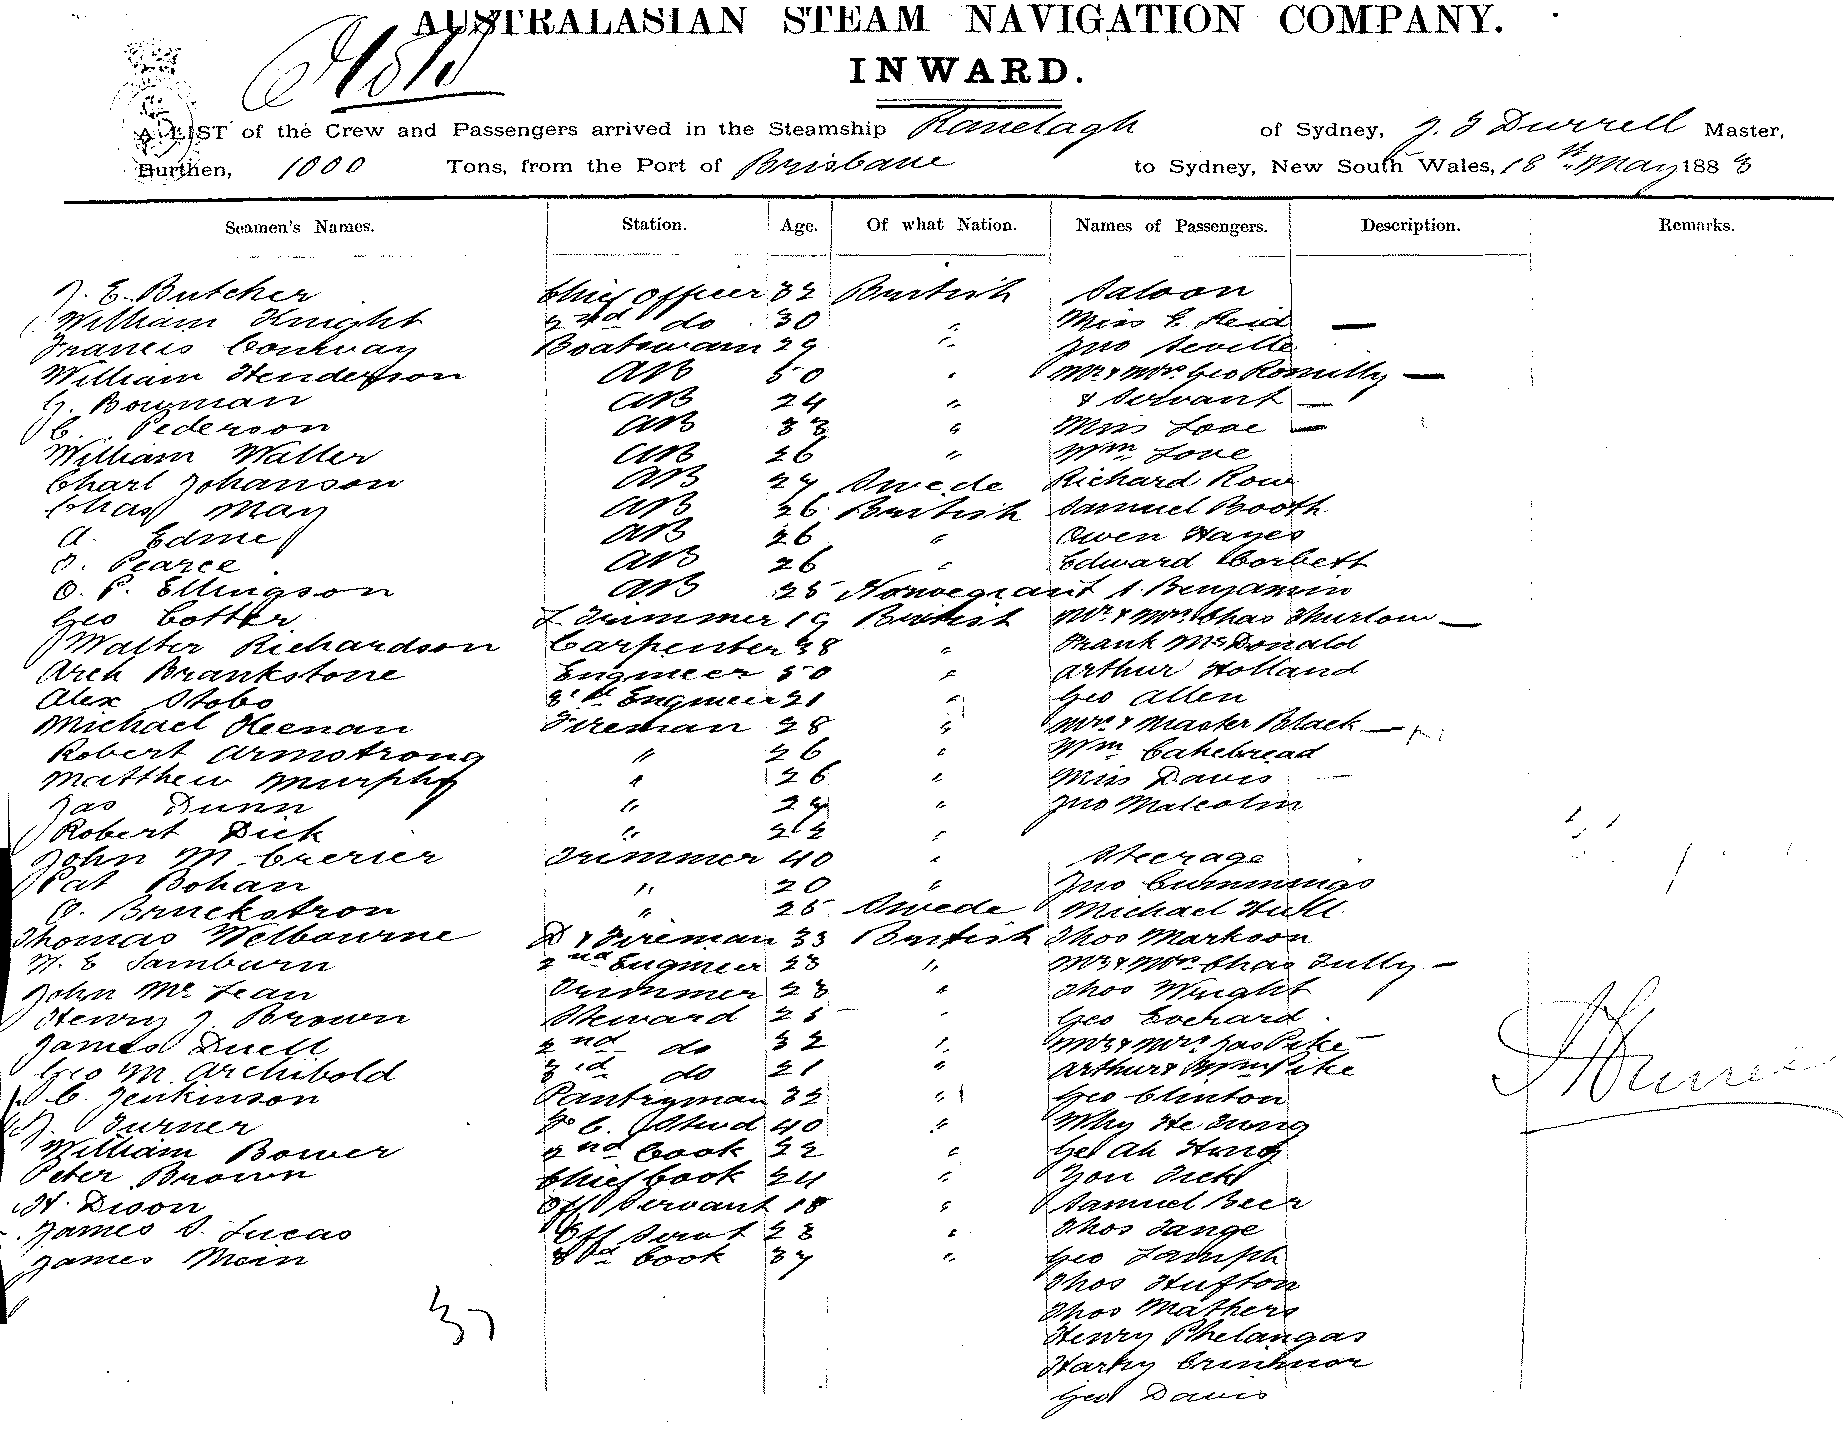 AUSTRALASIAN STEAM NAVIGATION COMPANY.
INWARD.
A LIST of the Crew and Passengers arrived in the Steamship Ranelagh of Sydney, J. S Durrell Master,
Burthen, 1000 Tons, from the Port of Brisbane to Sydney, New South Wales, 18th May 1883
Seamen's Names. Station. Age. Of what Nation. Names of Passengers. Description. Remarks.
J. E. Butcher Chief Officer 32 British Saloon
William Knight 2nd do 30 " Miss E. Reid —
Francis Conway Boatswain 29 " Jno Seville
William Henderson AB 50 " Mr & Mrs. Geo Romilly —
G. Bowman AB 24 " & Servant —
C. Pederson AB 33 " Miss Love —
William Waller AB 26 " Wm Love
Charl Johanson AB 27 Swede Richard Row
Chas May AB 26 British Samuel Booth
A. Edme AB 26 " Owen Hayes
J. Pearce AB 26 " Edward Corbett
O. P. Ellingson AB 25 Norwegian S. Benjamin
Geo Cotter L Trimmer 19 British Mr & Mrs Chas Thurlow —
Walter Richardson Carpenter 38 " Frank McDonald
Arch Brankstone Engineer 50 " Arthur Holland
Alex Stobo 3rd Engineer 21 " Geo Allen
Michael Heenan Fireman 28 " Mrs & Master Black —
Robert Armstrong " 26 " Wm Cakebread
Matthew Murphy " 26 " Miss Davis —
Jas Dunn " 27 " Jno Malcolm
Robert Dick " 22 "
John M. Crerier Trimmer 40 " Steerage
Pat Bohan " 20 " Jno Cummings
O. Bruckstron " 25 Swede Michael Hull
Thomas Welbourne D & Fireman 33 British Thos Markson
H. E Samburn 2nd Engineer 23 " Mr & Mrs Chas Tully —
John Mc Lean Trimmer 23 " Thos Wright
Henry J. Brown Steward 25 " Geo Everard
James Duell 2nd do 32 " Mr & Mrs Jas Pike —
Geo M. Archibold 3rd do 21 " Arthur & Wm Pike
C. Jenkinson Pantryman 32 " Geo Clinton
J. Turner F. C. Stwd 40 " Why He Tung
William Bower 2nd Cook 22 " Ge Ah Hung
Peter Brown Chief Cook 24 " Yon Tick
H. Dison Off Servant 18 " Samuel Beer
James S. Lucas Off Servt 23 " Thos Tange
James Mein 3rd Cook 37 " Geo Lamph
Thos Hufton
Thos Mathers
Henry Phelangas
Harry Crinhnor
Geo Davis
37